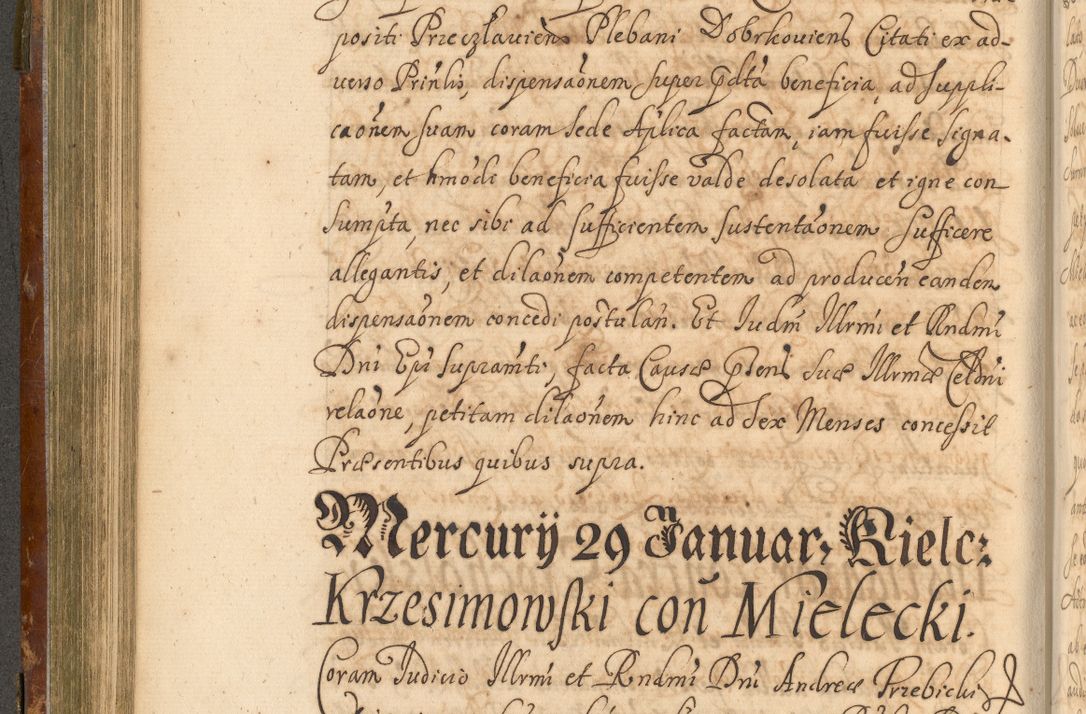 positi Przeczlaviens Plebani Dobrkoviens Citati ex ad-
verso Prinlis, dispensaõnem super pdta beneficia, ad suppli-
caõnem suam coram Sede Aplica factam, iam fuisse signa-
tam, et hmodi beneficia fuisse valde desolata et igne con-
sumpta, nec sibi ad sufficientem sustentaõnem sufficere
allegantis, et dilaõnem competentem ad producen eandem
dispensaõnem concedi postulan. Et Iudm Illrmi et Rndmi
Dni Epi supramti, facta Causæ psens suæ Illrmæ Celdni
relaõne, petitam dilaõnem hinc ad Sex Menses concessit
Præsentibus quibus supra.
Mercurÿ 29 Januar, Kielc:
Krzesimowski con Mielecki.
Coram Iudicio Illrmi et Rndmi Dni Andreæ Trzebicki